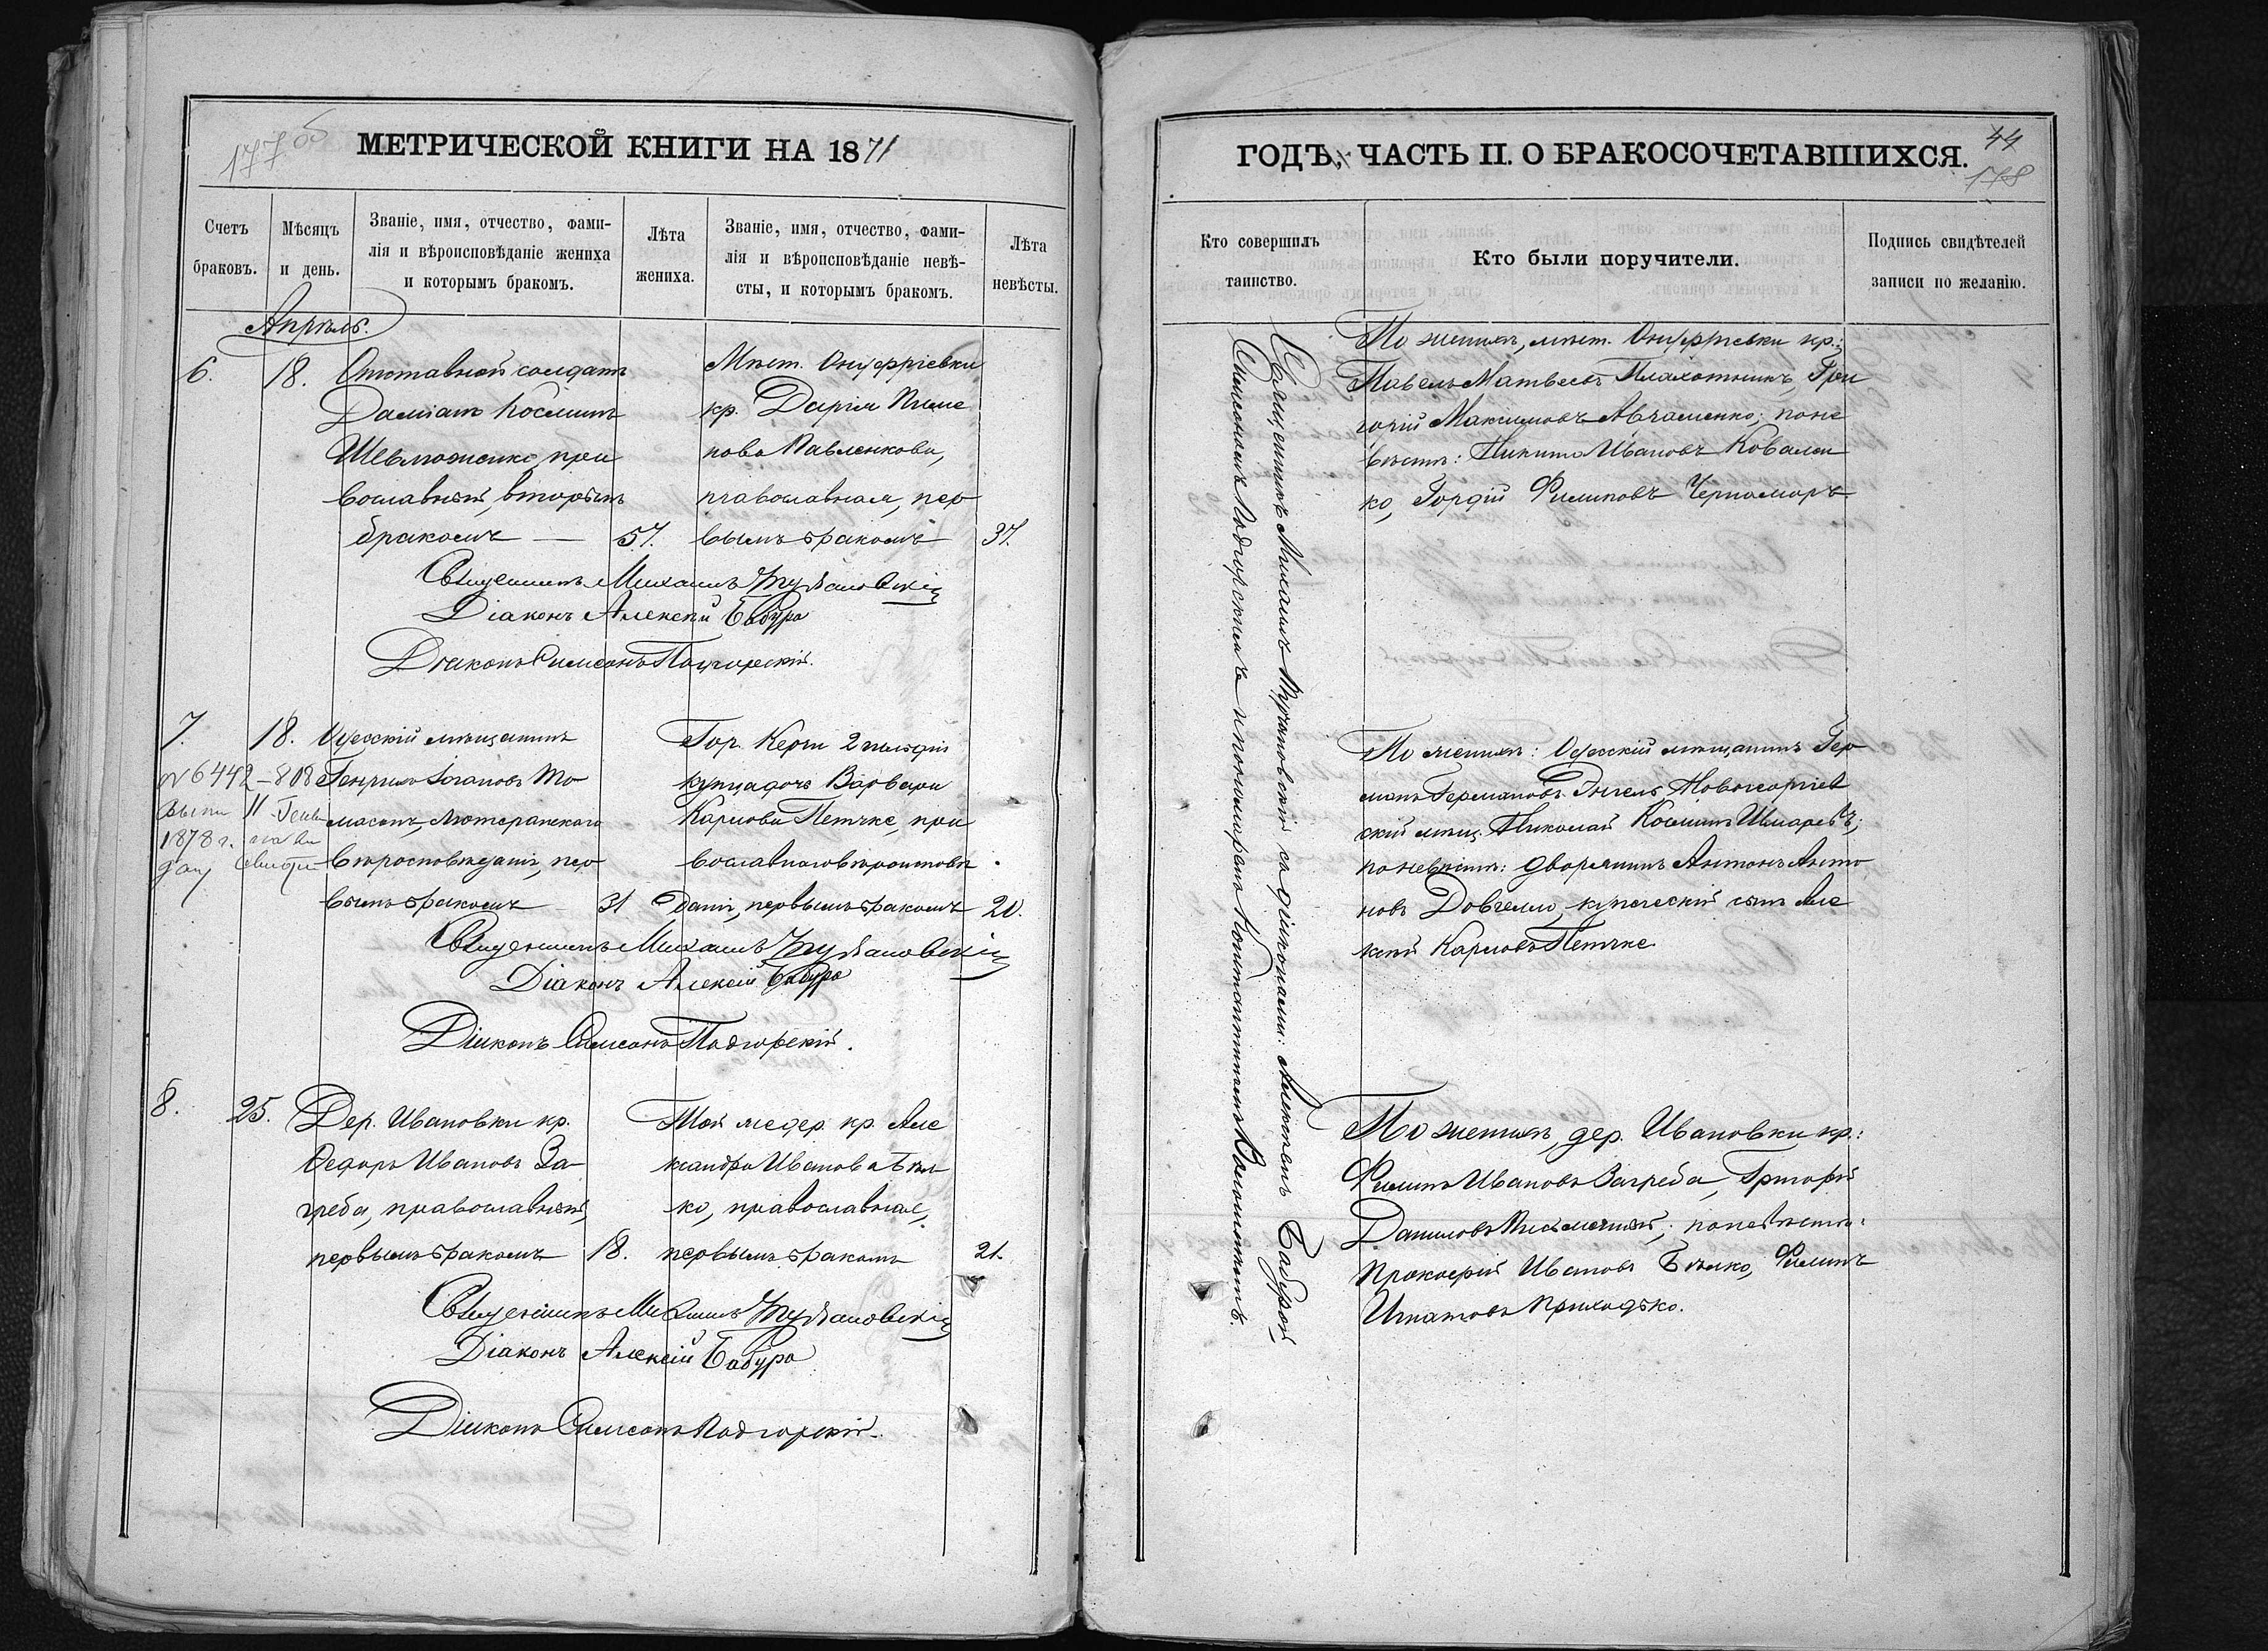 177 об
МЕТРИЧЕСКОЙ КНИГИ НА 1871
Счетъ браковъ.
Мѣсяцъ и день.
Званіе, имя, отчество, фами-
лія и вѣроисповѣданіе жениха
и которымъ бракомъ.
Лѣта жениха.
Званіе, имя, отчество, фами-
лія и вѣроисповѣданіе невѣ-
сты, и которымъ бракомъ.
Лѣта невѣсты.
Апрѣль.
6.
18.
Отставной солдатъ
Даміанъ Косминъ
пра
вославный, вторымъ
бракомъ — 57.
Мѣст. Онуфріевки
кр. Дарія Пиме
нова Павленкова,
православная, пер
вымъ бракомъ
37.
Священникъ Михаилъ Трубановскій
Діаконъ Алексѣй Бабура
Діаконъ Симеонъ Подгорскій.
7.
18.
№ 6442 – 808
1878 г.
Одесскій мѣщанинъ
Генрихъ Іогановъ То
масонъ, Лютеранскаго
вѣроисповѣданія, пер
вымъ бракомъ 31
Гор. Керчи 2 гильдіи
купца дочь Варвара
Карлова Петчке, пра
вославнаго вѣроисповѣ
данія, первымъ бракомъ
20.
Священникъ Михаилъ Трубановскій
Діаконъ Алексѣй Бабура
Діаконъ Симеонъ Подгорскій.
8.
25.
Дер. Ивановки кр.
Ѳедоръ Ивановъ За-
греба, православный,
первымъ бракомъ 18.
Той же дер. кр. Але
ксандра Иванова Бѣл
ко, православная,
первымъ бракомъ
21.
Священникъ Михаилъ Трубановскій
Діаконъ Алексѣй Бабура
Діаконъ Симеонъ Подгорскій.
44
178
ГОДЪ, ЧАСТЬ II. О БРАКОСОЧЕТАВШИХСЯ.
Кто совершилъ
таинство.
Кто были поручители.
Подпись свидѣтелей
записи по желанію.
Священникъ Михаилъ Трубановскій съ діаконами: Алексѣемъ Бабурой
Симеономъ Подгорскимъ и пономаремъ Константиномъ
По женихѣ, мѣст. Онуфріевки кр.:
Павелъ Матвеевъ Плахотникъ, Гри
горій Максимовъ Авраменко; по не
вѣстѣ: Никита Ивановъ Ковален
ко, Гордій Филиповъ Черноморъ
По женихѣ: Одесскій мѣщанинъ Гер
манъ Германовъ Энгель Новогеоргіев
скій мѣщ. Николай Косминъ Шмаревъ;
по невѣстѣ: дворянинъ Антонъ Анто
новъ Довгелло, купеческій сынъ Але
ксѣй Карловъ Петчке
По женихѣ, дер. Ивановки кр.:
Филипъ Ивановъ Загреба, Григорій
Даниловъ Письменный; по невѣстѣ:
Прокофій Ивановъ Бѣлко, Филипъ
Игнатовъ Приходько.